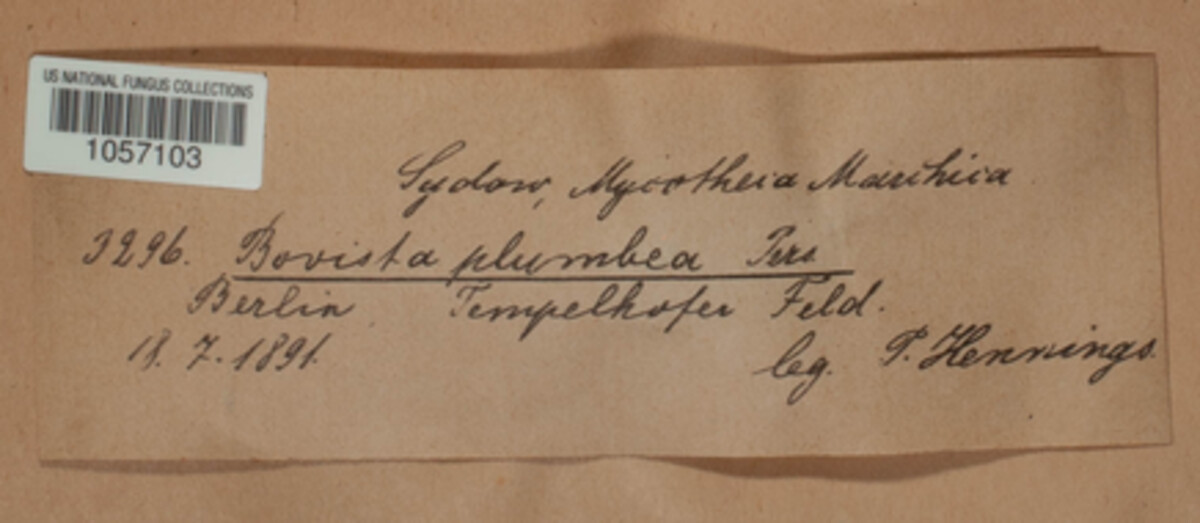 US NATIONAL FUNGUS COLLECTIONS
1057103
Sydow, Mycotheca Marchica
3296. Bovista plumbea Pers
Berlin Tempelhofer Feld.
18. 7. 1891. leg. P. Hennings.